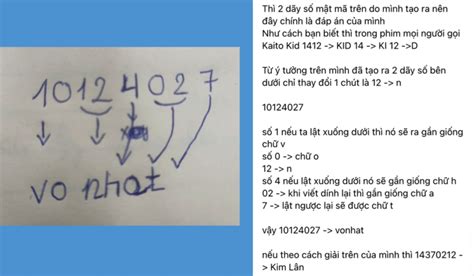 10124027
vo nhat
Thì 2 dãy số mật mã trên do mình tạo ra nên
đây chính là đáp án của mình
Như cách bạn biết thì trong phim mọi người gọi
Kaito Kid 1412 -> KID 14 -> KI 12 ->D
Từ ý tưởng trên mình đã tạo ra 2 dãy số bên
dưới chỉ thay đổi 1 chút là 12 -> n
10124027
số 1 nếu ta lật xuống dưới thì nó sẽ ra gần giống
chữ v
số 0 -> chữ o
12 -> n
số 4 nếu lật xuống dưới nó sẽ gần giống chữ h
02 -> khi viết dính lại thì gần giống chữ a
7 -> lật ngược lại sẽ được chữ t
vậy 10124027 -> vonhat
nếu theo cách giải trên của mình thì 14370212 ->
Kim Lân